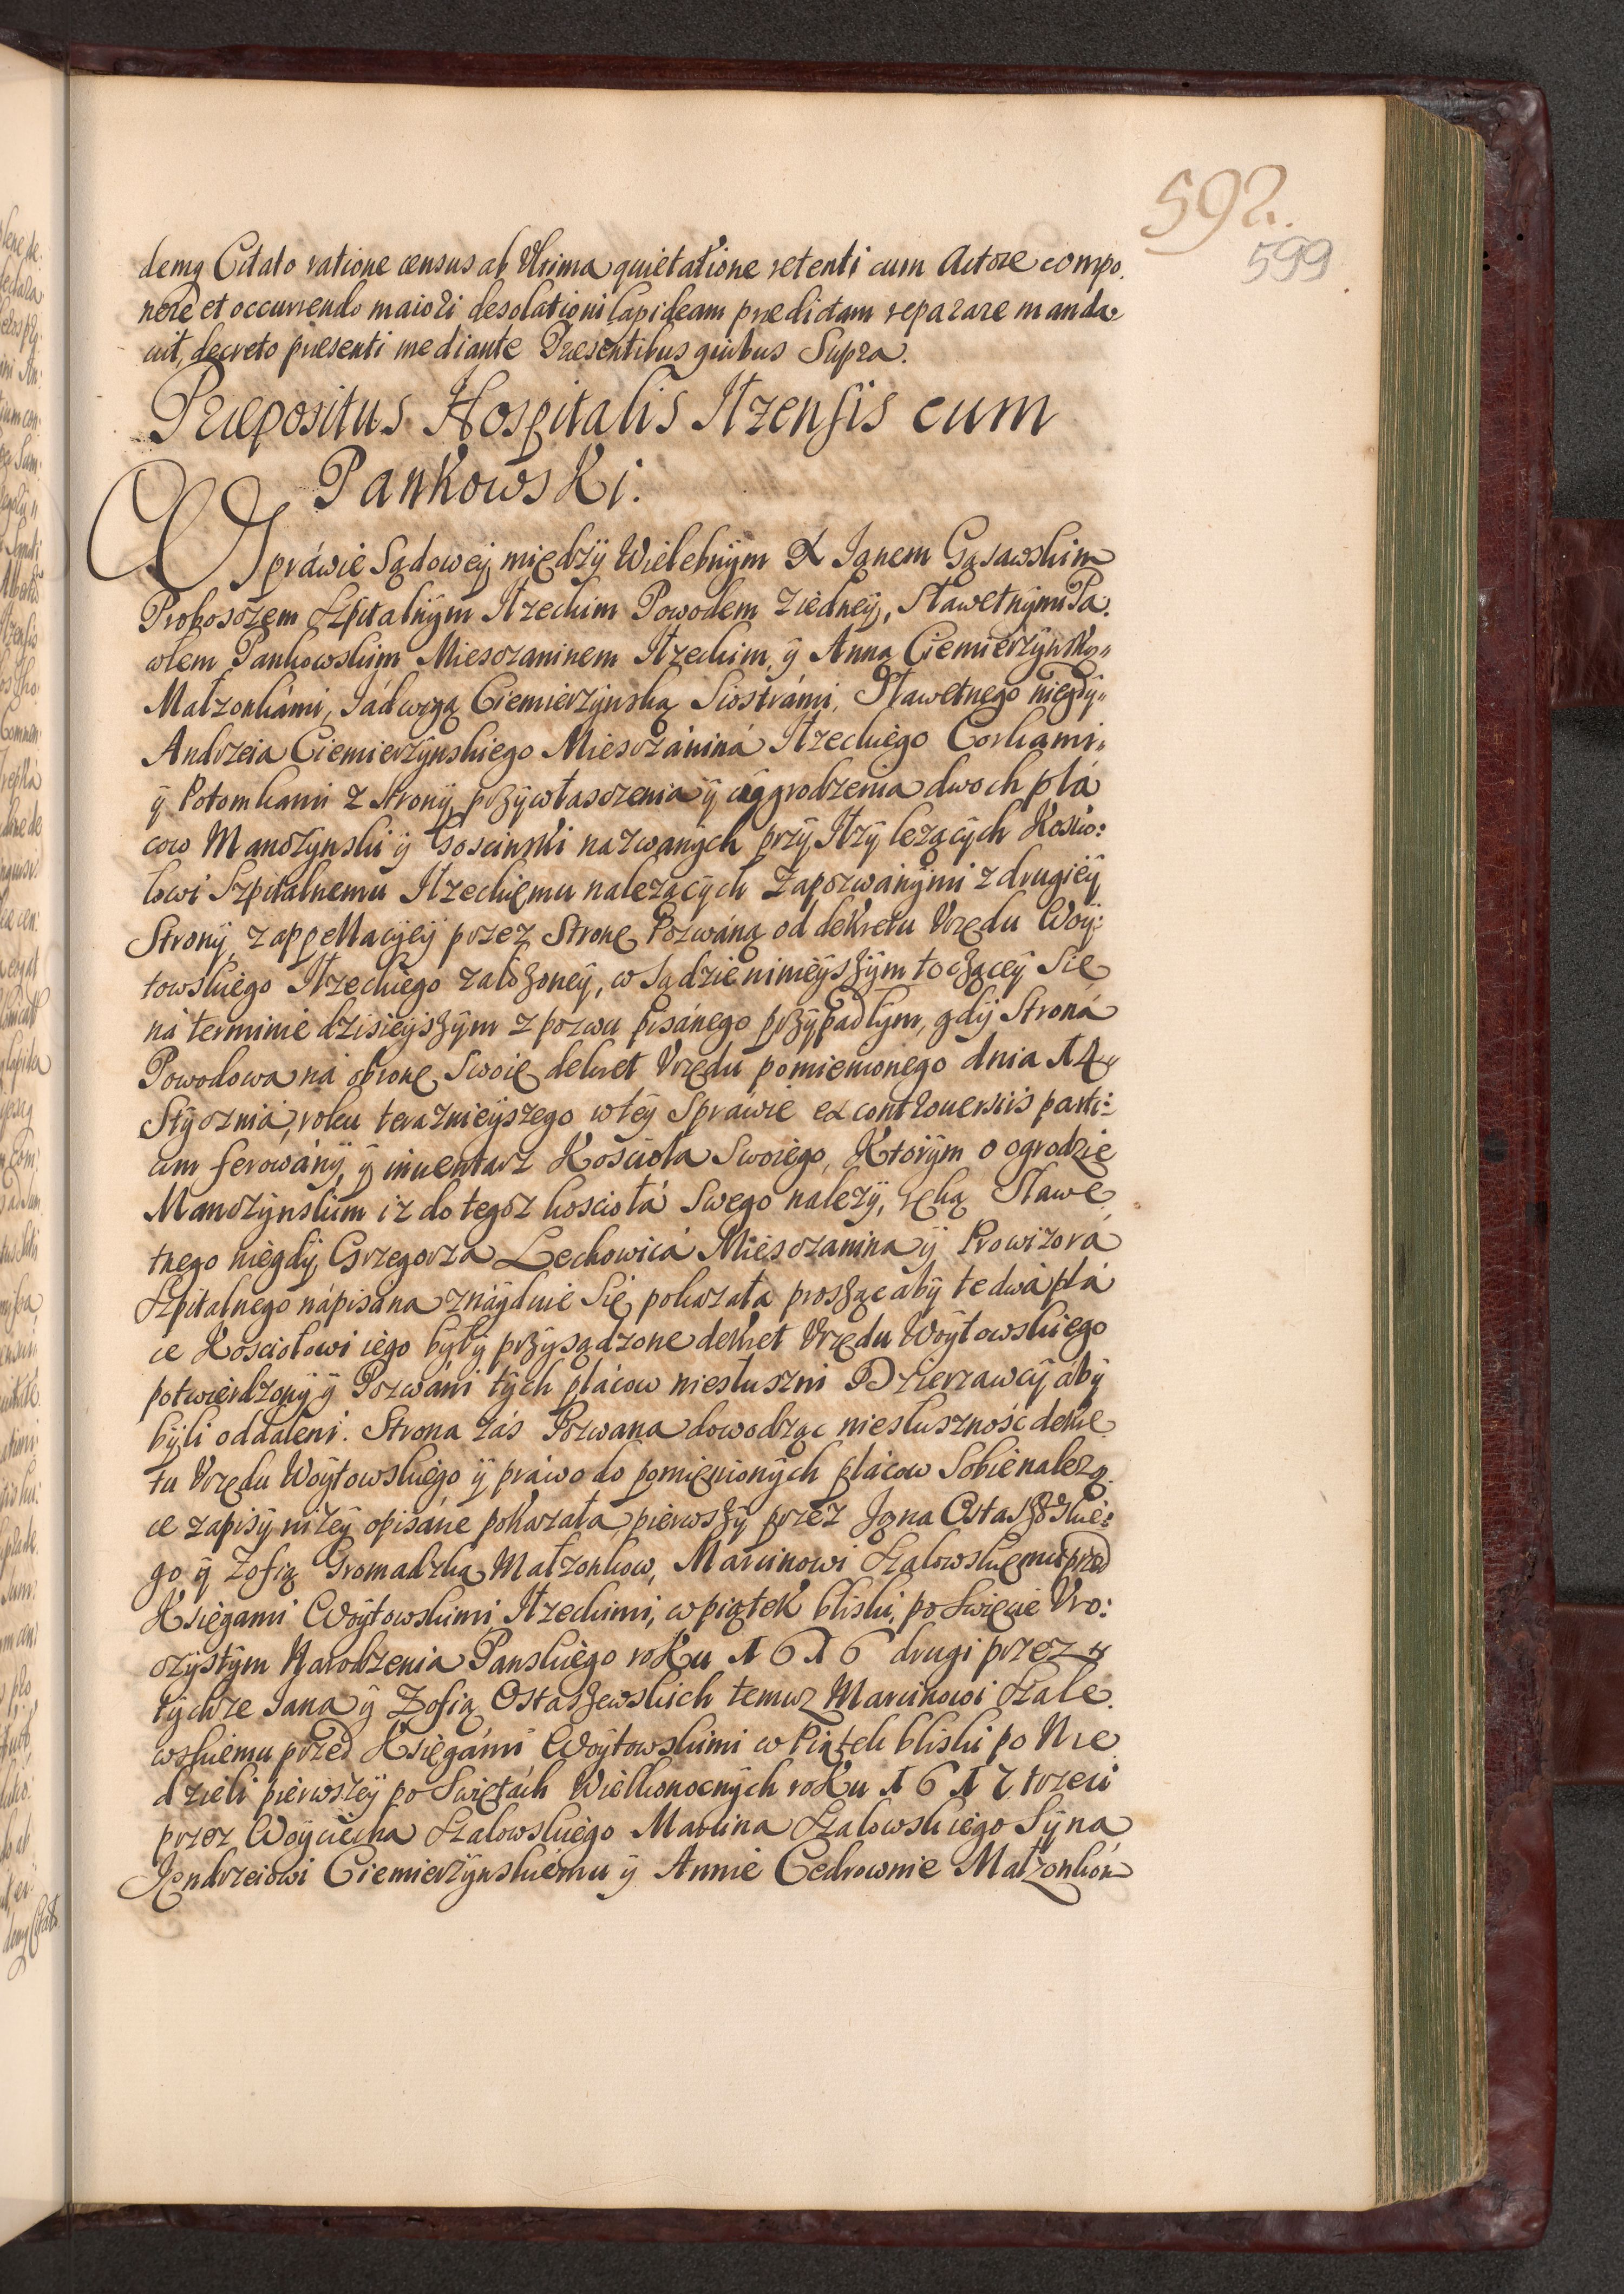 592.
599
demq Citato ratione census ab Vltima quietatione retenti cum Actore compo.
nere et occurrendo maiori desolationi lapideam prædictam reparare manda-
uit, decreto præsenti mediante Præsentibus quibus Supra.
Præpositus Hospitalis Iłzensis cum
Pankowski.
W Spráwie Sądowey między Wielebnym X Ianem Gąsawskim
Proboszczem Szpitalnym Iłzeckim Powodem ziedney, Sławetnymi Pa:
włem Pankowskim Miesczaninem Iłzeckim, y Anną Ciemierzynską
Małzonkámi, Jádwigą Ciemierzynską Siostrámi, Sławetnego niegdy
Andrzeia Ciemierzynskiego Miesczániná Iłzeckiego Corkami
y Potomkami z Strony przywłasczenia y ogrodzenia dwoch plá
cow Manczynski y Goscinski nazwanych przy Iłzy lezących Koscio:
łowi Szpitalnemu Iłzeckiemu nalezących Zapozwanymi z drugiey
Strony, z appellacyey przez Stronę Pozwáną od dekretu Vrzędu Woy:
towskiego Iłzeckiego załozoney, w Sądzie ninieyszym toczącey Się
ná terminie dzisieyszym z pozwu pisánego przypadłym, gdy Stroná
Powodowa ná obronę Swoię dekret Vrzędu pomienionego dnia 14
Stycznia, roku teraznieyszego wtey Spráwie ex controuersiis parti:
um ferowány, y inuentarz Kościoła Swoiego, Ktorym o ogrodzie
Manczynskim iz do tegoz kosciołá Swego nalezy, ręką Sławe
tnego niegdy Grzegorza Lechowicá Miesczanina y Prowizorá
Szpitalnego nápisana znáyduie Się pokazała prosząc aby te dwá plá
ce Kosciołowi iego były przysądzone dekret Vrzędu Woytowskiego
potwierdzony y Pozwáni tych plácow niesłuszni Dzierzawcy áby
byli oddaleni. Strona zás Pozwana dowodząc niesłusznośc dekre
tu Vrzędu Woytowskiego y práwo do pomienionych plácow Sobie nalezą
ce zapisy nizey opisáne pokazała, pierwszy przez Jana Ostaszewskie:
go y Zofią Gromadzką Małzonkow, Marcinowi Szalowskiemu przed
Księgami Woytowskimi Iłzeckimi, w piątek bliski, po Swięcie Vro:
czystym Narodzenia Panskiego roku 1616 drugi przez
tychze Jana y Zofią Ostaszewskich temuz Marcinowi Szale.
wskiemu przed Księgámi Woytowskimi w Piątek bliski po Nie
dzieli pierwszey po Swiętách Wielkonocnych roku 1617 trzeci
przez Woyciecha Szalowskiego Marcina Szalowskiego Syna
Jendrzeiowi Ciemierzynskiemu y Annie Cedrownie Małzonkom